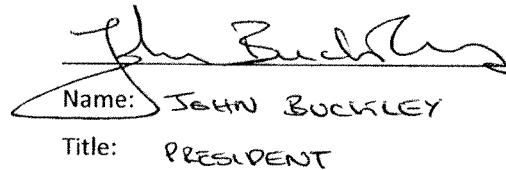 John Buckley
Name: JOHN BUCKLEY
Title: PRESIDENT